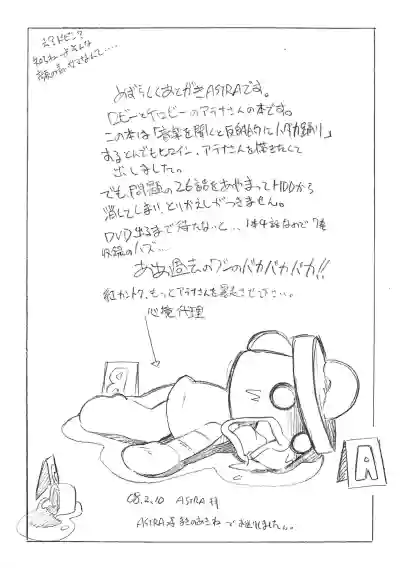 めずらしくあとがきASTRAです。
ロビーとケロビーのアテナさんの本です。
この本は「音楽を聞くと反射的にハダカ踊り」
するとんでもヒロイン、アテナさんを描きたくて
出しました。
でも、問題の26話をあやまってHDDから
消してしまい、とりかえしがつきません。
DVD出るまで待たないと…1本4話なので7巻
収録のハズ…
ああ過去のワシのバカバカバカ!!
紅カントク、もっとアテナさんを暴走させて下さい。
心境代理
B
A
08.2.10 ASTRA拝
ASTRA
でお送りしました。